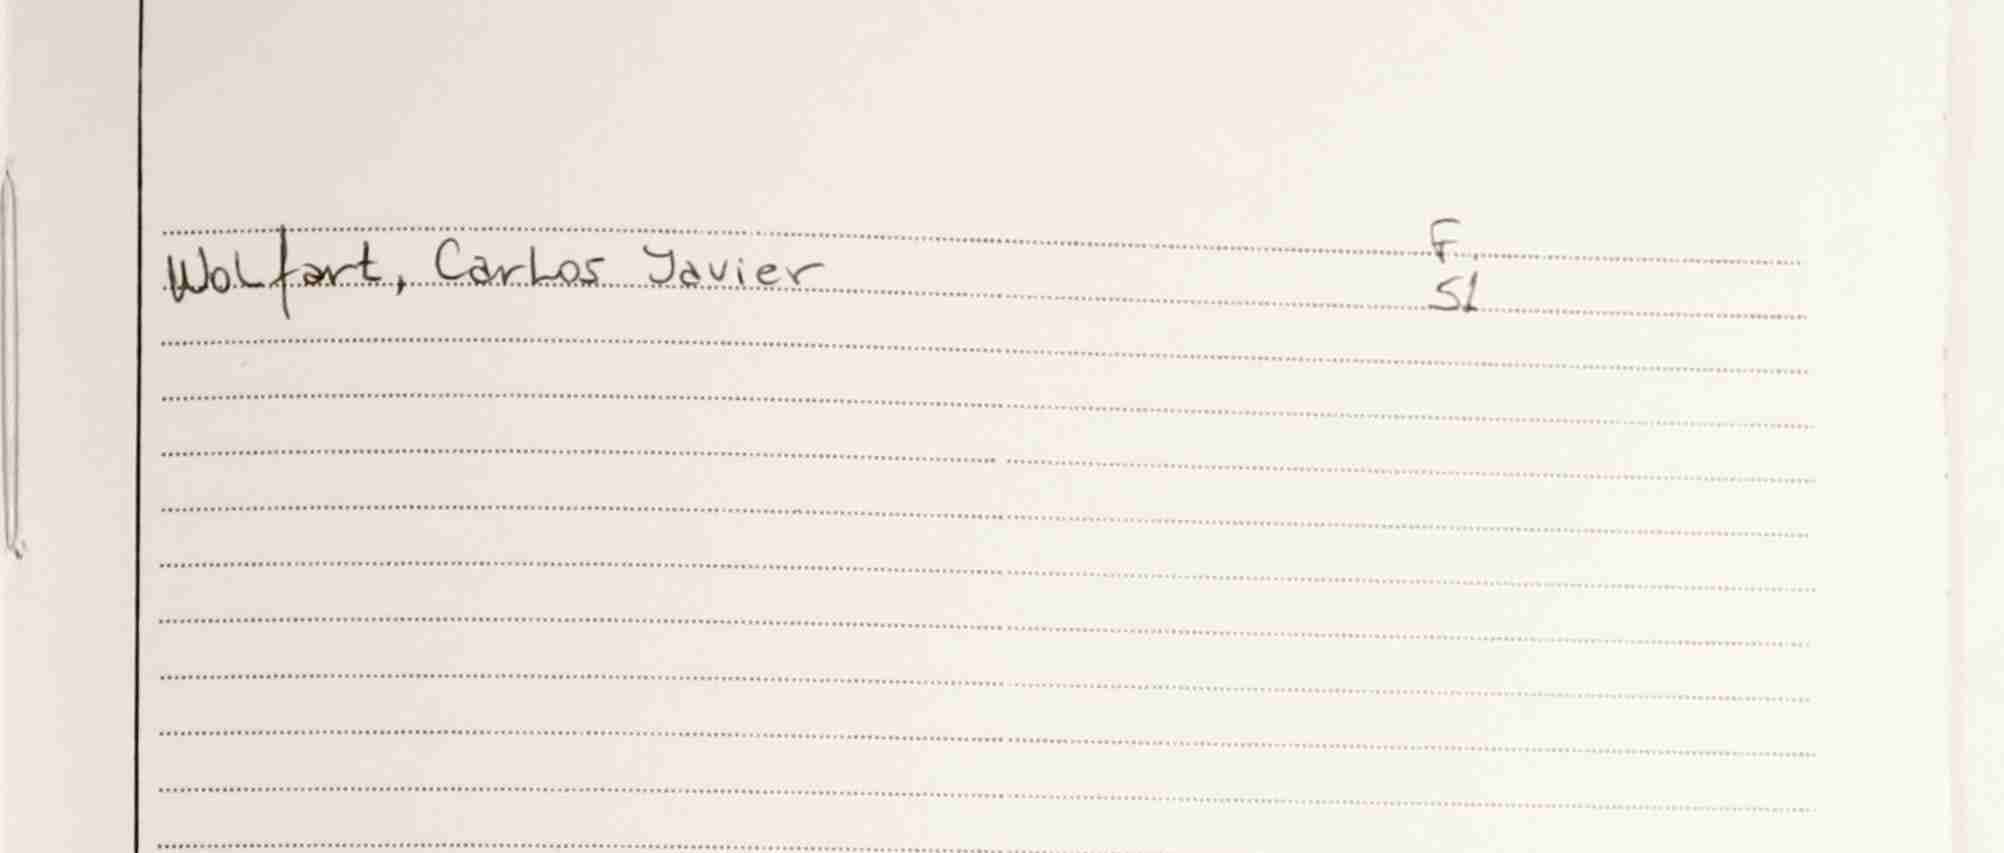 F.
Wolfart, Carlos Javier 51